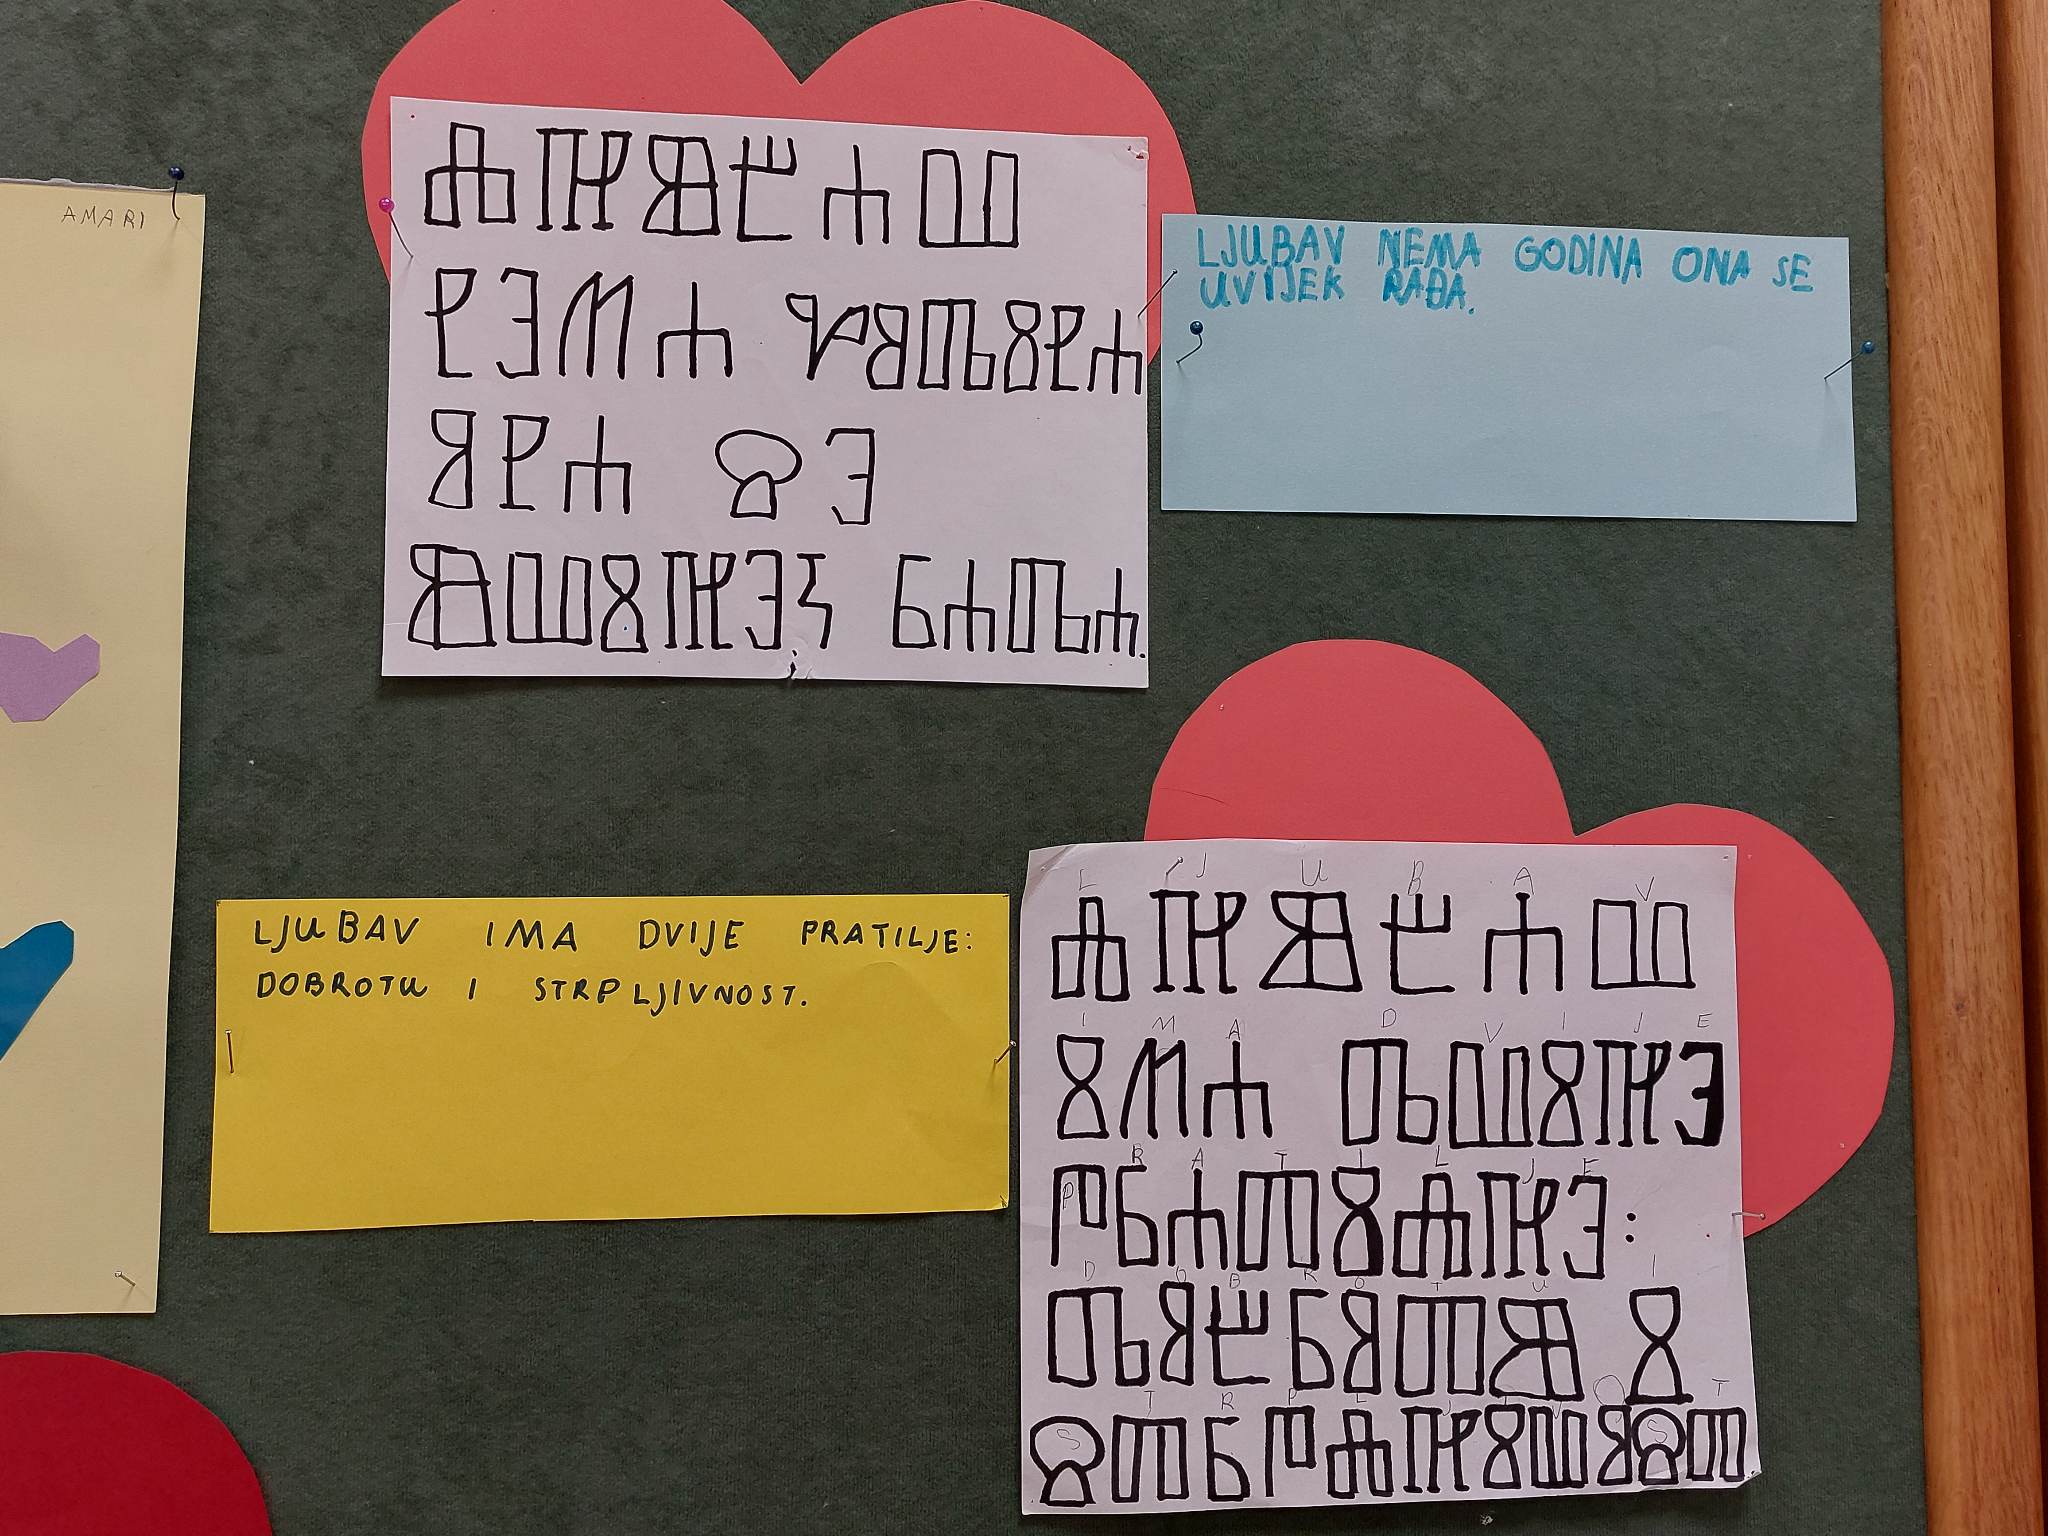 AMARI
ⰎⰌⰖⰁⰀⰂ
ⰐⰅⰏⰀ ⰃⰑⰄⰋⰐⰀ
ⰑⰐⰀ ⰔⰅ
ⰖⰂⰋⰌⰅⰍ ⰓⰀⰄⰀ.
LJUBAV NEMA GODINA ONA SE
UVIJEK RAĐA.
LJUBAV IMA DVIJE PRATILJE:
DOBROTU I STRPLJIVNOST.
L J U B A V
ⰎⰌⰖⰁⰀⰂ
I M A D V I J E
ⰋⰏⰀ ⰄⰂⰋⰌⰅ
P R A T I L J E
ⰒⰓⰀⰕⰋⰎⰌⰅ:
D O B R O T U I
ⰄⰑⰁⰓⰑⰕⰖ Ⰻ
S T R P L J I V O S T
ⰔⰕⰓⰒⰎⰌⰋⰂⰑⰔⰕ